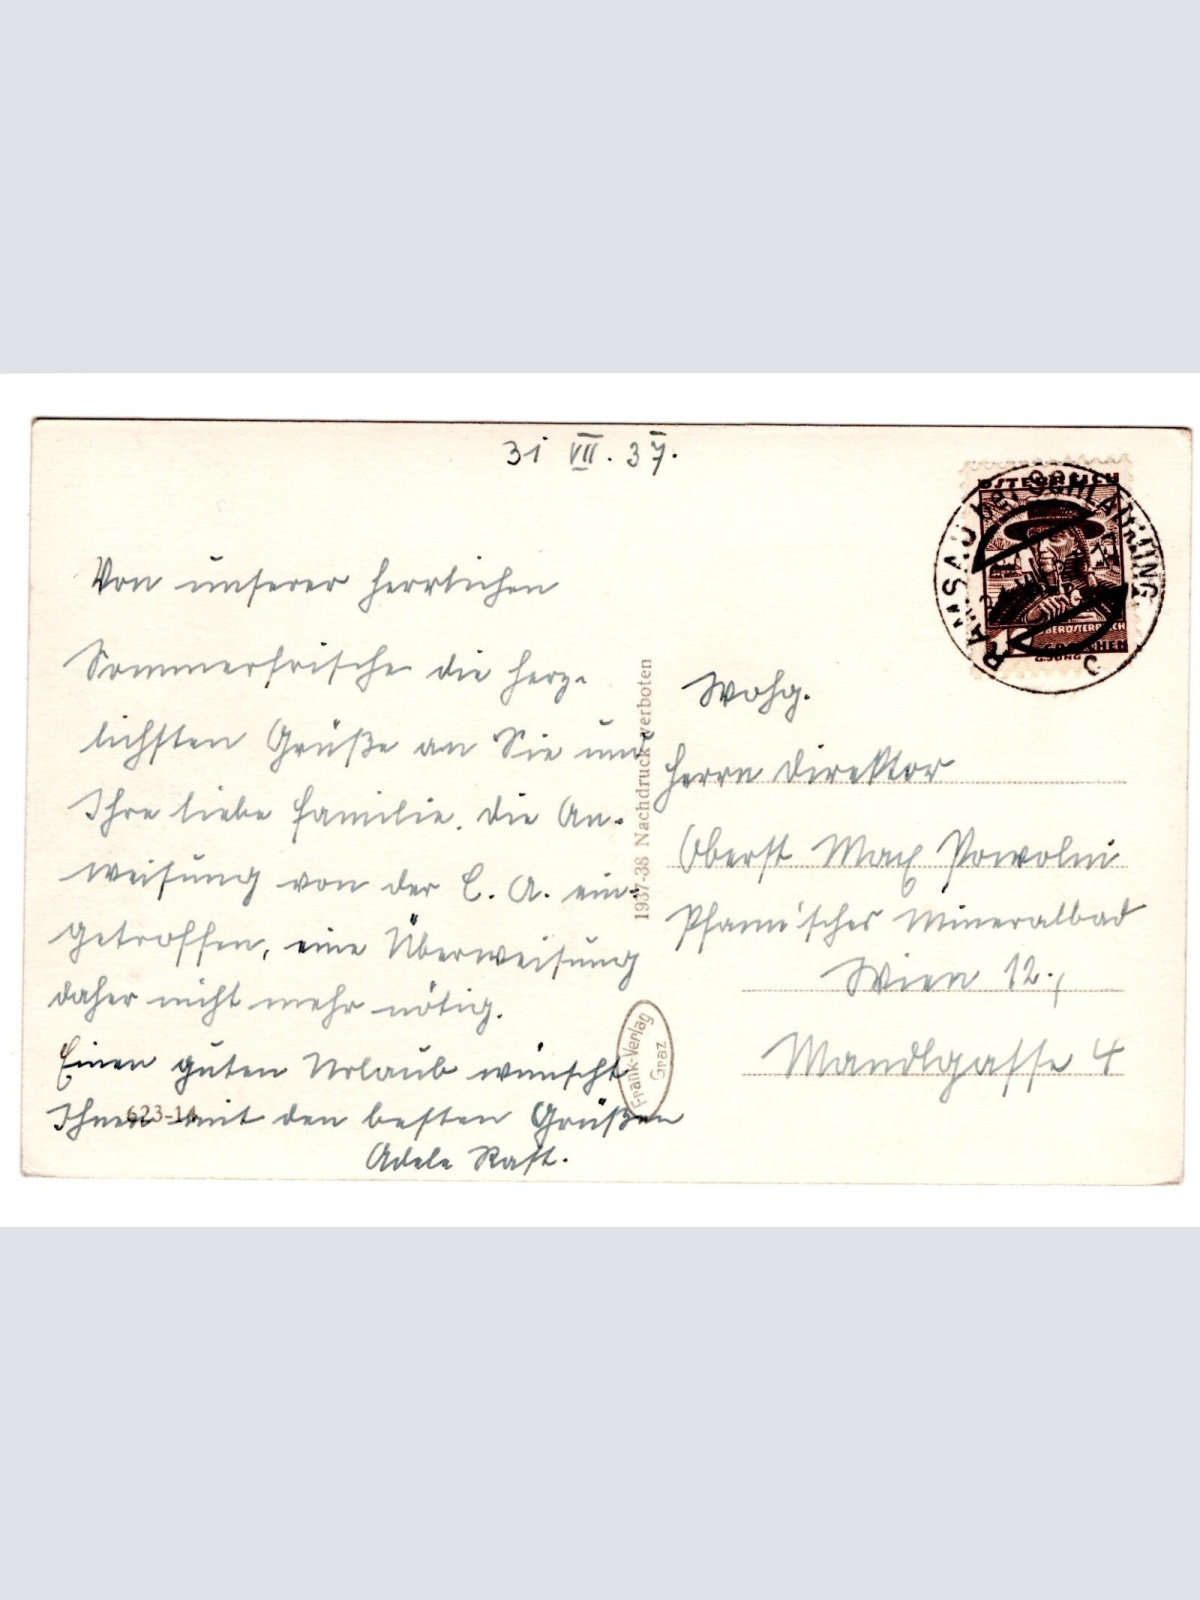 31 VII. 37.
Von unserer herrlichen
Sommerfrische die herz-
lichsten Grüße an Sie und
Ihre liebe Familie. Die An-
weisung von der C. A. ein-
getroffen, eine Überweisung
daher nicht mehr nötig.
Einen guten Urlaub wünscht
Ihnen mit den besten Grüßen
Adele Rast.
623-14
1937-38 Nachdruck verboten
Frank-Verlag
Graz
ÖSTERREICH
OBERÖSTERREICH
GROSCHEN
RAMSAU bei SCHLADMING
Wohg.
Herrn Direktor
Oberst Max Powolni
Pfann'sches Mineralbad
Wien 12.,
Mandlgasse 4